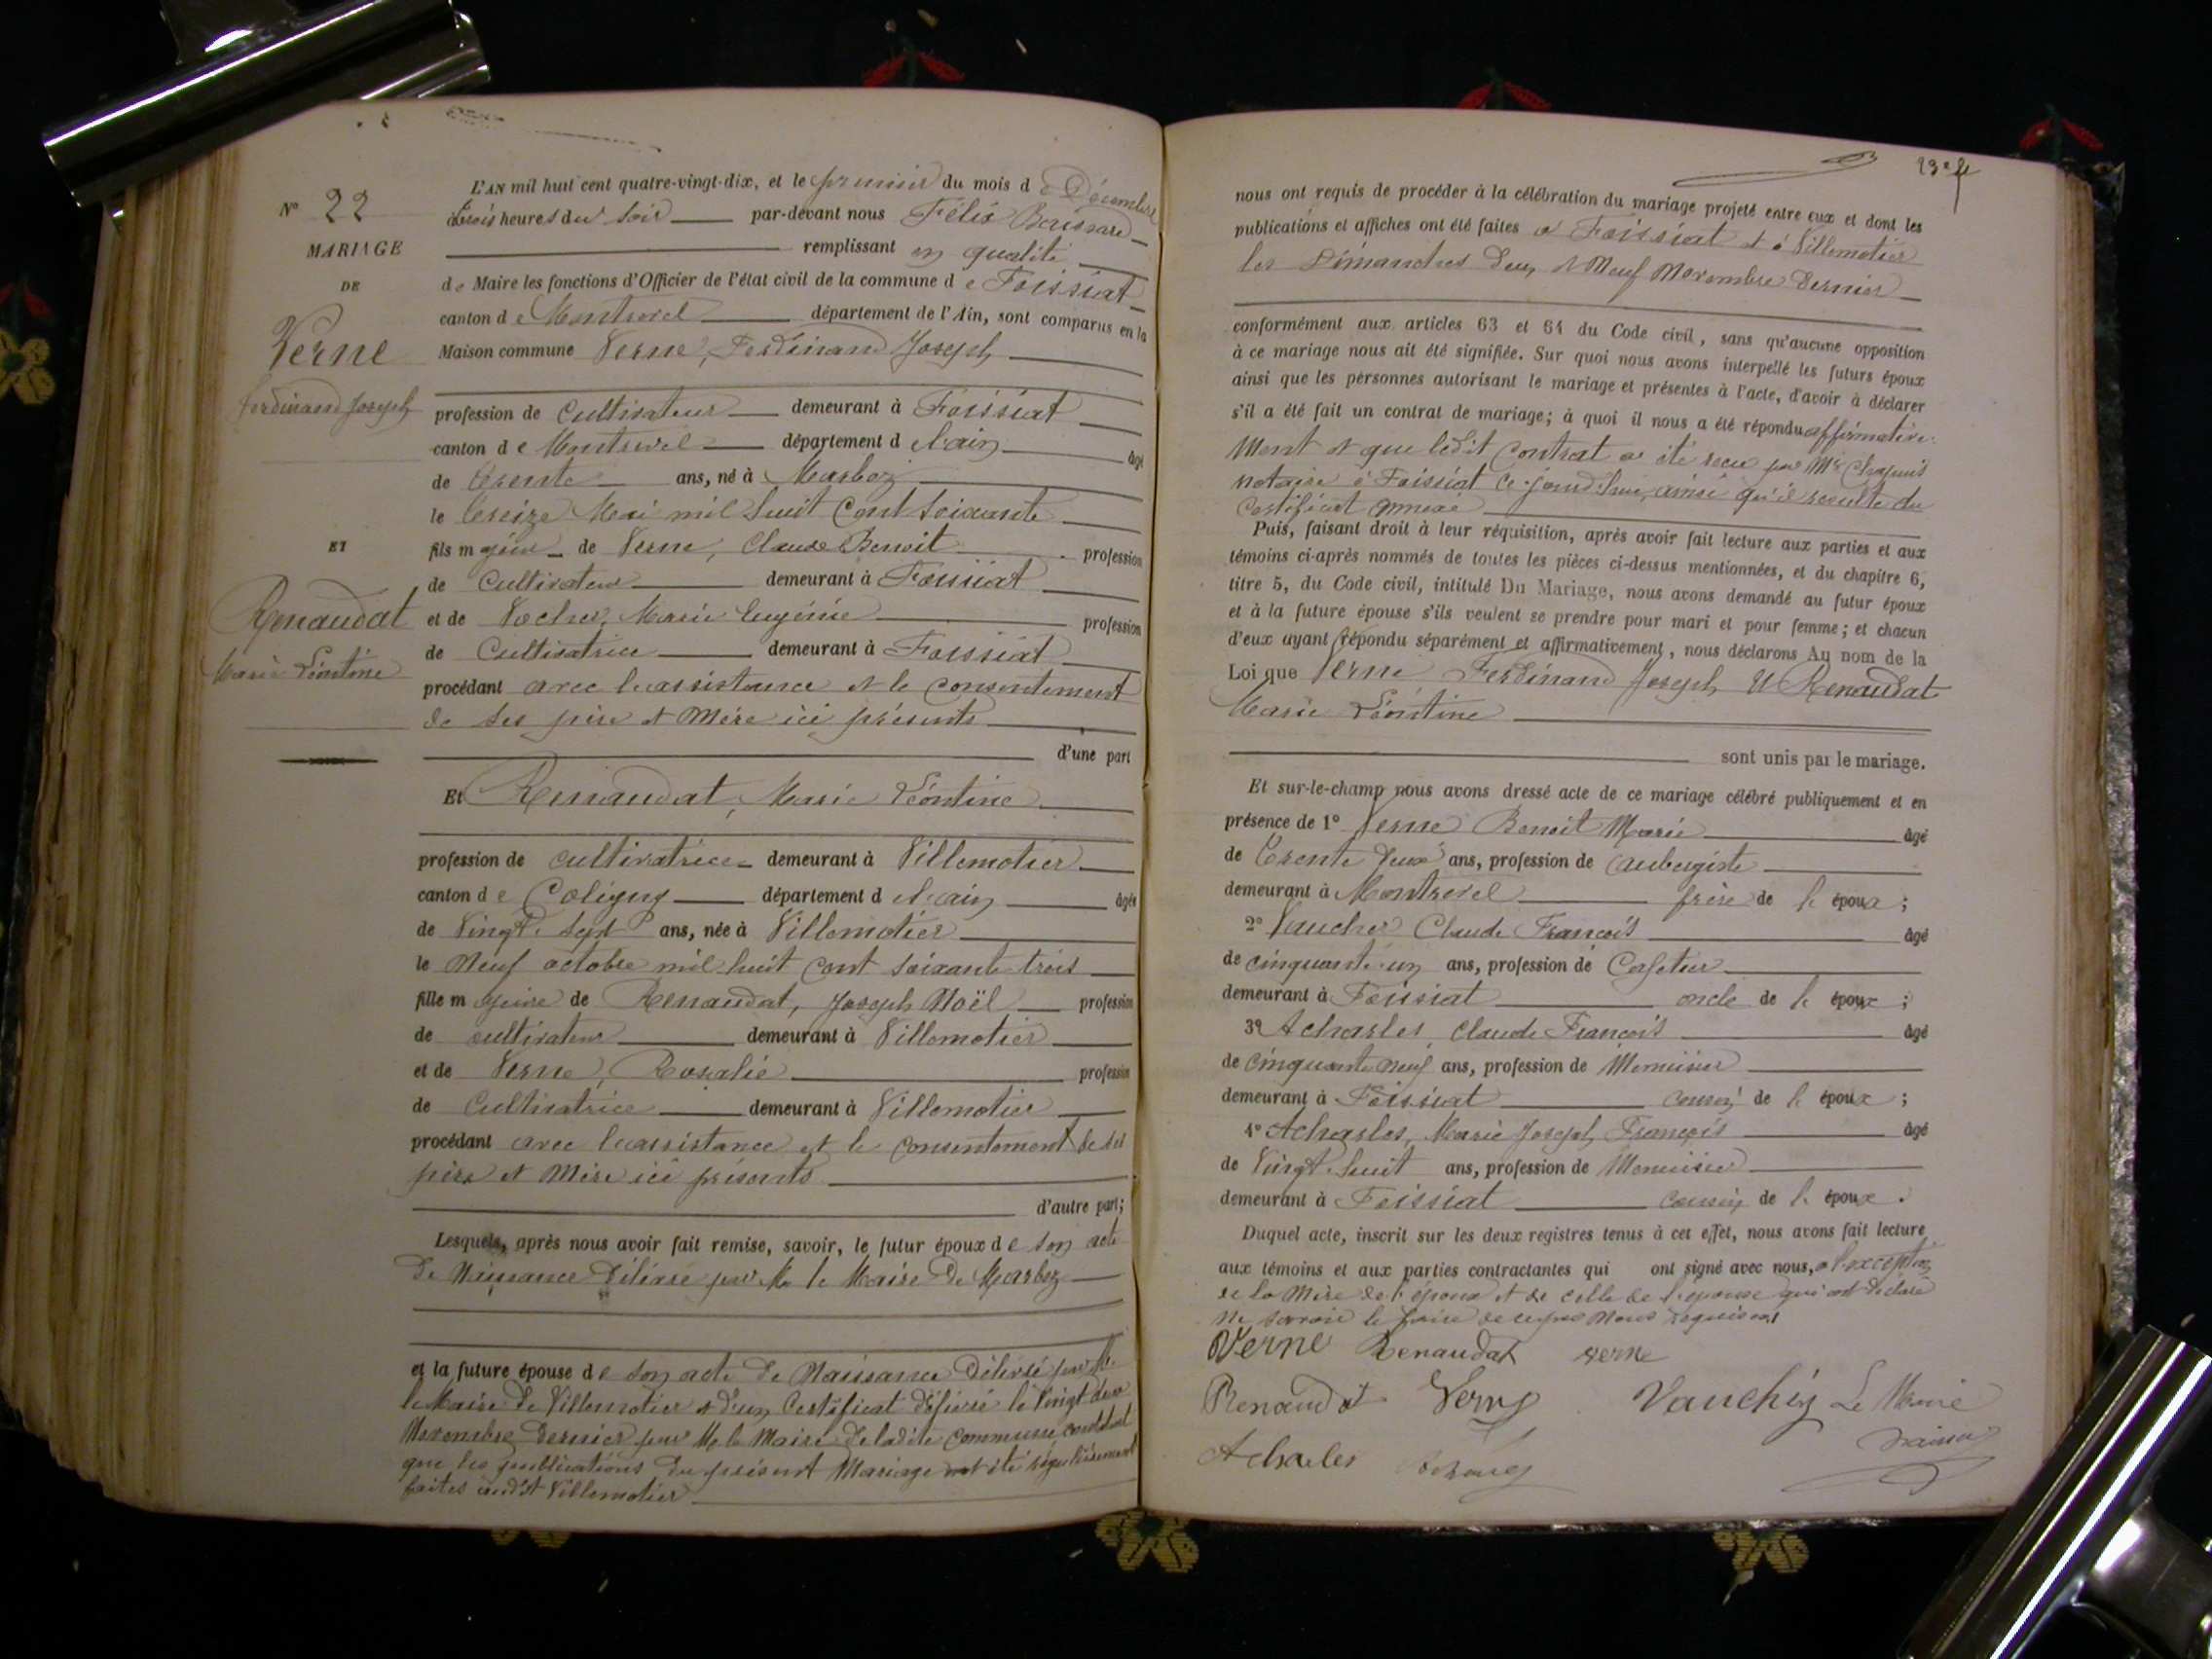 N° 22
MARIAGE
DE
Verne
ferdinand Joseph
ET
Renaudat
Marie Léontine
L'AN mil huit cent quatre-vingt-dix, et le premier du mois de Décembre
à trois heures du soir par-devant nous Félix
remplissant en qualité
de Maire les fonctions d'Officier de l'état civil de la commune de Foissiat
canton de Montrevel département de l'Ain, sont comparus en la
Maison commune Verne, Ferdinand Joseph
profession de Cultivateur demeurant à Foissiat
canton de Montrevel département de l'ain âgé
de trente ans, né à Marboz
le treize Mai mil huit cent soixante
fils majeur de Verne, Claude Benoit profession
de Cultivateur demeurant à Foissiat
et de Vocher, Marie Eugénie profession
de Cultivatrice demeurant à Foissiat
procédant avec l'assistance et le consentement
de ses père et mère ici présents
d'une part
Et Renaudat, Marie Léontine
profession de cultivatrice demeurant à Villemotier
canton de Coligny département de l'ain âgée
de Vingt-sept ans, née à Villemotier
le Neuf octobre mil huit cent soixante trois
fille majeure de Renaudat, Joseph Noël profession
de cultivateur demeurant à Villemotier
et de Verne, Rosalie profession
de Cultivatrice demeurant à Villemotier
procédant avec l'assistance et le consentement de ses
père et mère ici présents
d'autre part;
Lesquels, après nous avoir fait remise, savoir, le futur époux de son acte
de Naissance délivré par M. le Maire de Marboz
et la future épouse de son acte de Naissance délivré par M.
le Maire de Villemotier et d'un Certificat délivré le Vingt deux
Novembre dernier par M. le Maire de ladite commune constatant
que les publications du présent Mariage ont été régulièrement
faites audit Villemotier
nous ont requis de procéder à la célébration du mariage projeté entre eux et dont les
publications et affiches ont été faites à Foissiat et à Villemotier
les Dimanches deux et Neuf Novembre dernier
conformément aux articles 63 et 64 du Code civil, sans qu'aucune opposition
à ce mariage nous ait été signifiée. Sur quoi nous avons interpellé les futurs époux
ainsi que les personnes autorisant le mariage et présentes à l'acte, d'avoir à déclarer
s'il a été fait un contrat de mariage; à quoi il nous a été répondu affirmative-
ment et que ledit contrat a été reçu par Me Chapuis
notaire à Foissiat ce jourd'hui, ainsi qu'il résulte du
certificat annexé
Puis, faisant droit à leur réquisition, après avoir fait lecture aux parties et aux
témoins ci-après nommés de toutes les pièces ci-dessus mentionnées, et du chapitre 6,
titre 5, du Code civil, intitulé Du Mariage, nous avons demandé au futur époux
et à la future épouse s'ils veulent se prendre pour mari et pour femme; et chacun
d'eux ayant répondu séparément et affirmativement, nous déclarons Au nom de la
Loi que Verne Ferdinand Joseph et Renaudat
Marie Léontine
sont unis par le mariage.
Et sur-le-champ nous avons dressé acte de ce mariage célébré publiquement et en
présence de 1° Verne Benoit Marie âgé
de trente deux ans, profession de aubergiste
demeurant à Montrevel frère de l'époux;
2° Vaucher Claude François âgé
de cinquante-un ans, profession de Cafetier
demeurant à Foissiat oncle de l'époux;
3° Acharles, Claude François âgé
de cinquante neuf ans, profession de Menuisier
demeurant à Foissiat cousin de l'époux;
4° Acharles, Marie Joseph François âgé
de Vingt-huit ans, profession de Menuisier
demeurant à Foissiat cousin de l'époux.
Duquel acte, inscrit sur les deux registres tenus à cet effet, nous avons fait lecture
aux témoins et aux parties contractantes qui ont signé avec nous, à l'exception
de la Mère de l'époux et de celle de l'épouse qui ont déclaré
ne savoir le faire de ce par nous requises
Verne Renaudat verne
Renaudat Verne Vaucher Le Maire
Acharles